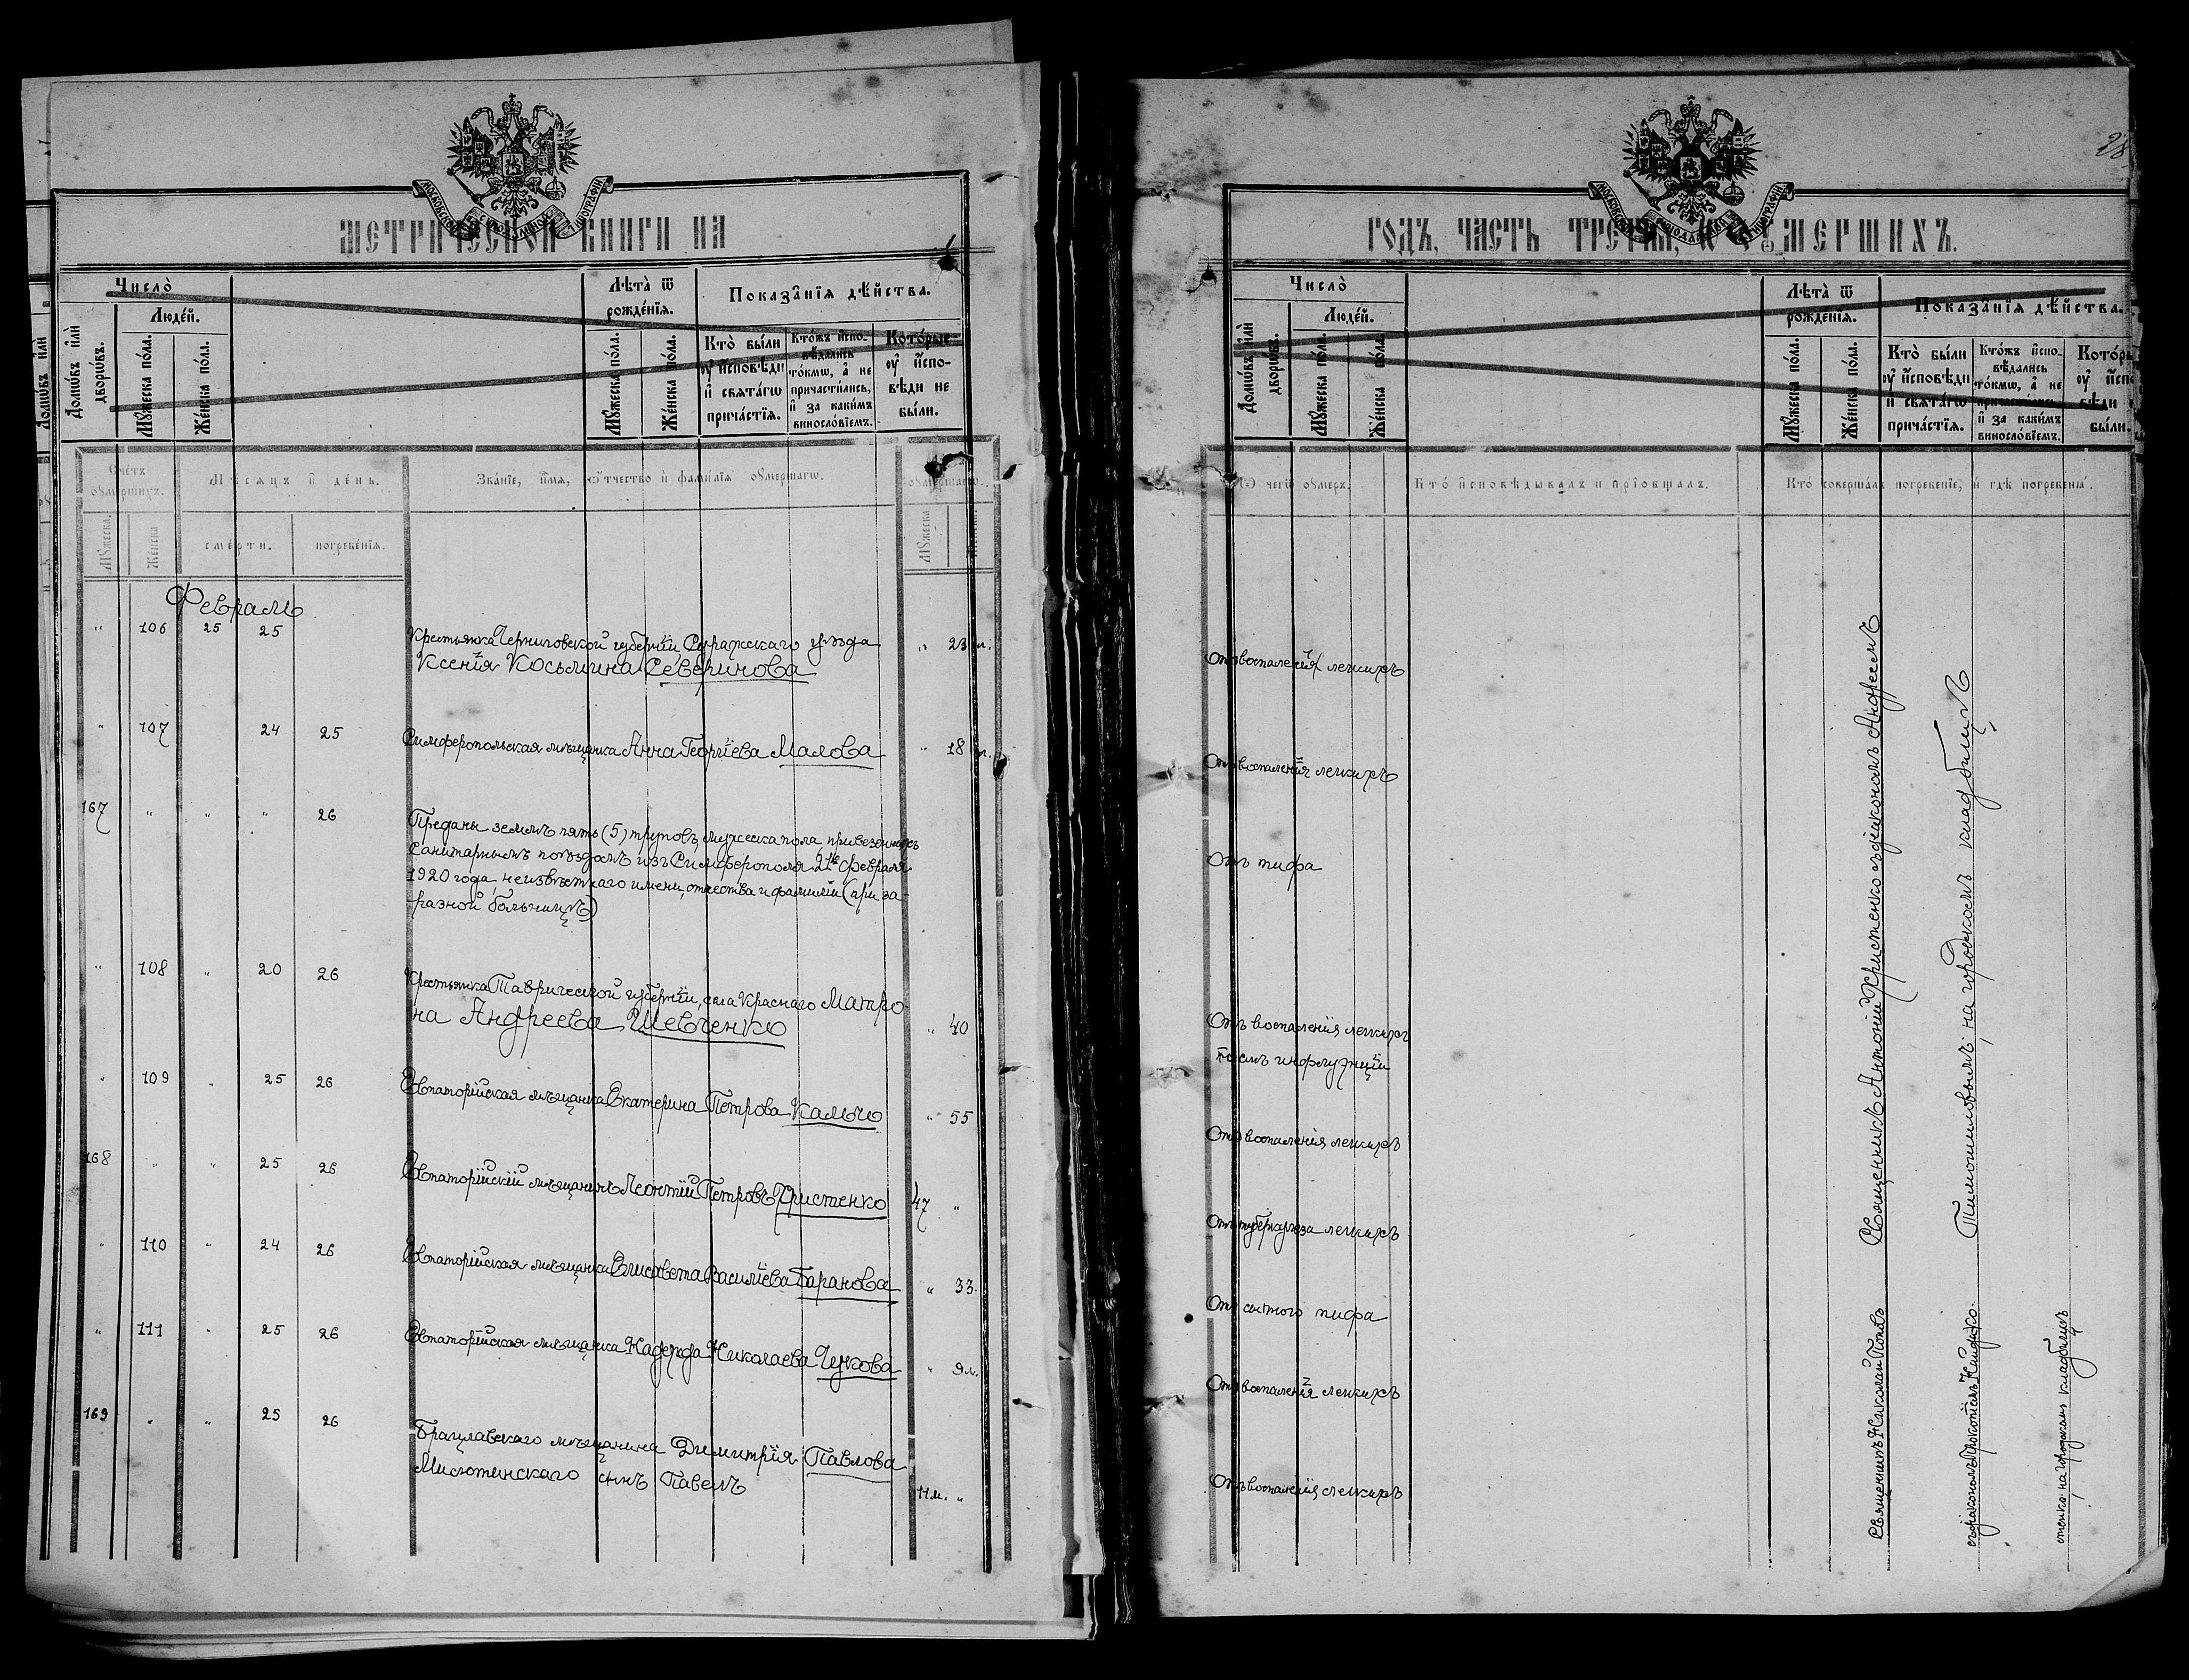 МЕТРИЧЕСКОЙ КНИГИ НА
Число̀
Домѡвъ и҆лѝ дворѡвъ.
Люде́й.
Мꙋжеска по́ла.
Же́нска по́ла.
Лѣта̀ ѿ рожде́нїѧ.
Мꙋжеска по́ла.
Же́нска по́ла.
Показа̑нїѧ дѣ́йства.
Кто̀ бы́ли ᲂу҆ и҆сповѣди и҆ свѧта́гѡ прича́стїѧ.
Кто́жъ и҆спо-
вѣдались
то́кмѡ, а҆ не
причасти́лись,
и҆ за каки́мъ
винослόвїемъ.
Кото́рые
ᲂу҆ и҆спо-
вѣди не
бы́ли.
Счетъ ᲂумершихъ.
Мꙋжеска
Женска
Мѣсѧцъ и҆ де́нь.
сме́рти.
погребе́нїѧ.
Зва́нїе, и҆́мѧ, ѻ҆́тчество и҆ фами́лїѧ ᲂу҆ме́ршагѡ.
Мꙋжеска
Февраль
" 106 25 25 Крестьянка Черниговской губернїи Суражскаго уѣзда
Ксенїя Косьмина Северинова " 23 л.
" 107 24 25 Симферопольская мѣщанка Анна Георгїева Малова " 18 л.
167 " " " 26 Преданы землѣ пять (5) труповъ, мужеска пола, привезенныхъ
санитарнымъ поѣздомъ изъ Симферополя 21го февраля
1920 года, неизвѣстнаго имени, отчества и фамилїи (при за-
разной больницѣ)
" 108 " 20 26 Крестьянка Таврической губернїи, села Краснаго Матро
на Андреева Шевченко " 40
" 109 " 25 26 Евпаторїйская мѣщанка Екатерина Петрова Кальчо " 55
168 " " 25 26 Евпаторїйскїй мѣщанинъ Леонтїй Петровъ Христенко 47 "
" 110 " 24 26 Евпаторїйская мѣщанка Елисавета Василїева Баранова " 33.
" 111 " 25 26 Евпаторїйская мѣщанка Надежда Николаева Чукова " 9 м.
169 " " 25 26 Брацлавскаго мѣщанина Димитрїя Павлова
сынъ Павелъ 11 м. "
28
ГОДЪ, ЧАСТЬ ТРЕТЇѦ, Ѡ ᲂУМЕРШИХЪ.
Число̀
Домѡвъ и҆лѝ дворѡвъ.
Люде́й.
Мꙋжеска по́ла.
Же́нска по́ла.
Лѣта̀ ѿ рожде́нїѧ.
Мꙋжеска по́ла.
Же́нска по́ла.
Показа̑нїѧ дѣ́йства.
Кто̀ бы́ли ᲂу҆ и҆сповѣди и҆ свѧта́гѡ прича́стїѧ.
Кто́жъ и҆спо-
вѣдались
то́кмѡ, а҆ не
причасти́лись,
и҆ за каки́мъ
винослόвїемъ.
бы́ли.
Ѿ чегѡ ᲂу҆меръ.
Кто̀ и҆сповѣдывалъ и прїобщалъ.
Кто̀ соверша́лъ погребенїе, и҆ гдѣ погребены̀.
Отъ воспаленїя легкихъ
Отъ воспаленїя легкихъ
Отъ тифа
Отъ воспаленїя легкихъ
послѣ инфлуэнцїи
Отъ воспаленїя легкихъ
Отъ туберкулеза легкихъ
Отъ сыпного тифа
Отъ воспаленїя легкихъ
Отъ воспаленїя легкихъ
Священникъ Антонїй Христенко съ дїакономъ Андреемъ
Тимошовымъ, на городскомъ кладбищѣ
Священникъ Николай Поповъ
съ дїакономъ Прокопїемъ
на городскомъ кладбищѣ